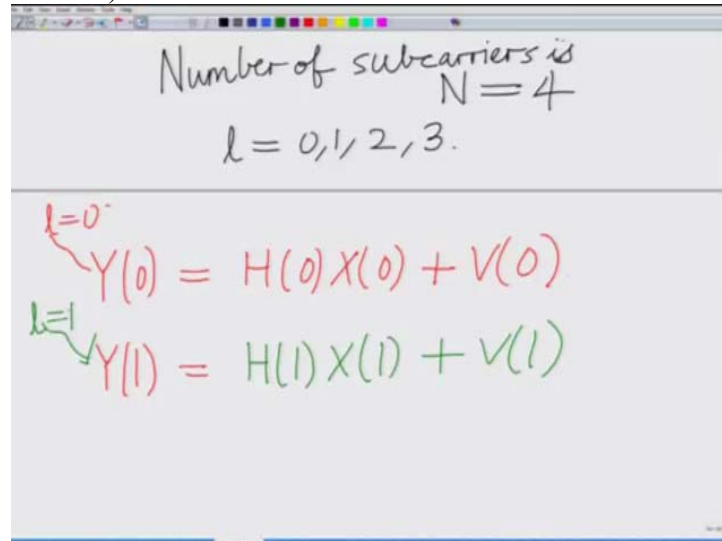 Number of subcarriers is
N = 4
l = 0, 1, 2, 3.
l=0
Y(0) = H(0)X(0) + V(0)
l=1
Y(1) = H(1)X(1) + V(1)